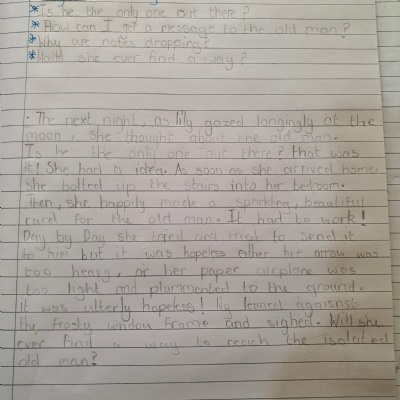 * Is he the only one out there?
* How can I get a message to the old man?
* Why are notes dropping?
* Wait! she ever find a way?
. The next night, as lily gazed longingly at the
moon, she thought about the old man.
Is he the only one out there? that was
it! She had a idea. As soon as she arrived home,
she bolted up the stairs into her bedroom.
Then, she happily made a sparkling, beautiful
card for the old man. It had to work!
Day by Day she tried and tried to send it
to him but it was hopeless either her arrow was
too heavy, or her paper airplane was
too light and plummented to the ground.
It was utterly hopeless! lily leaned agaisnst
the frosty window frame and sighed. Will she
ever find a way to reach the isolated
old man?